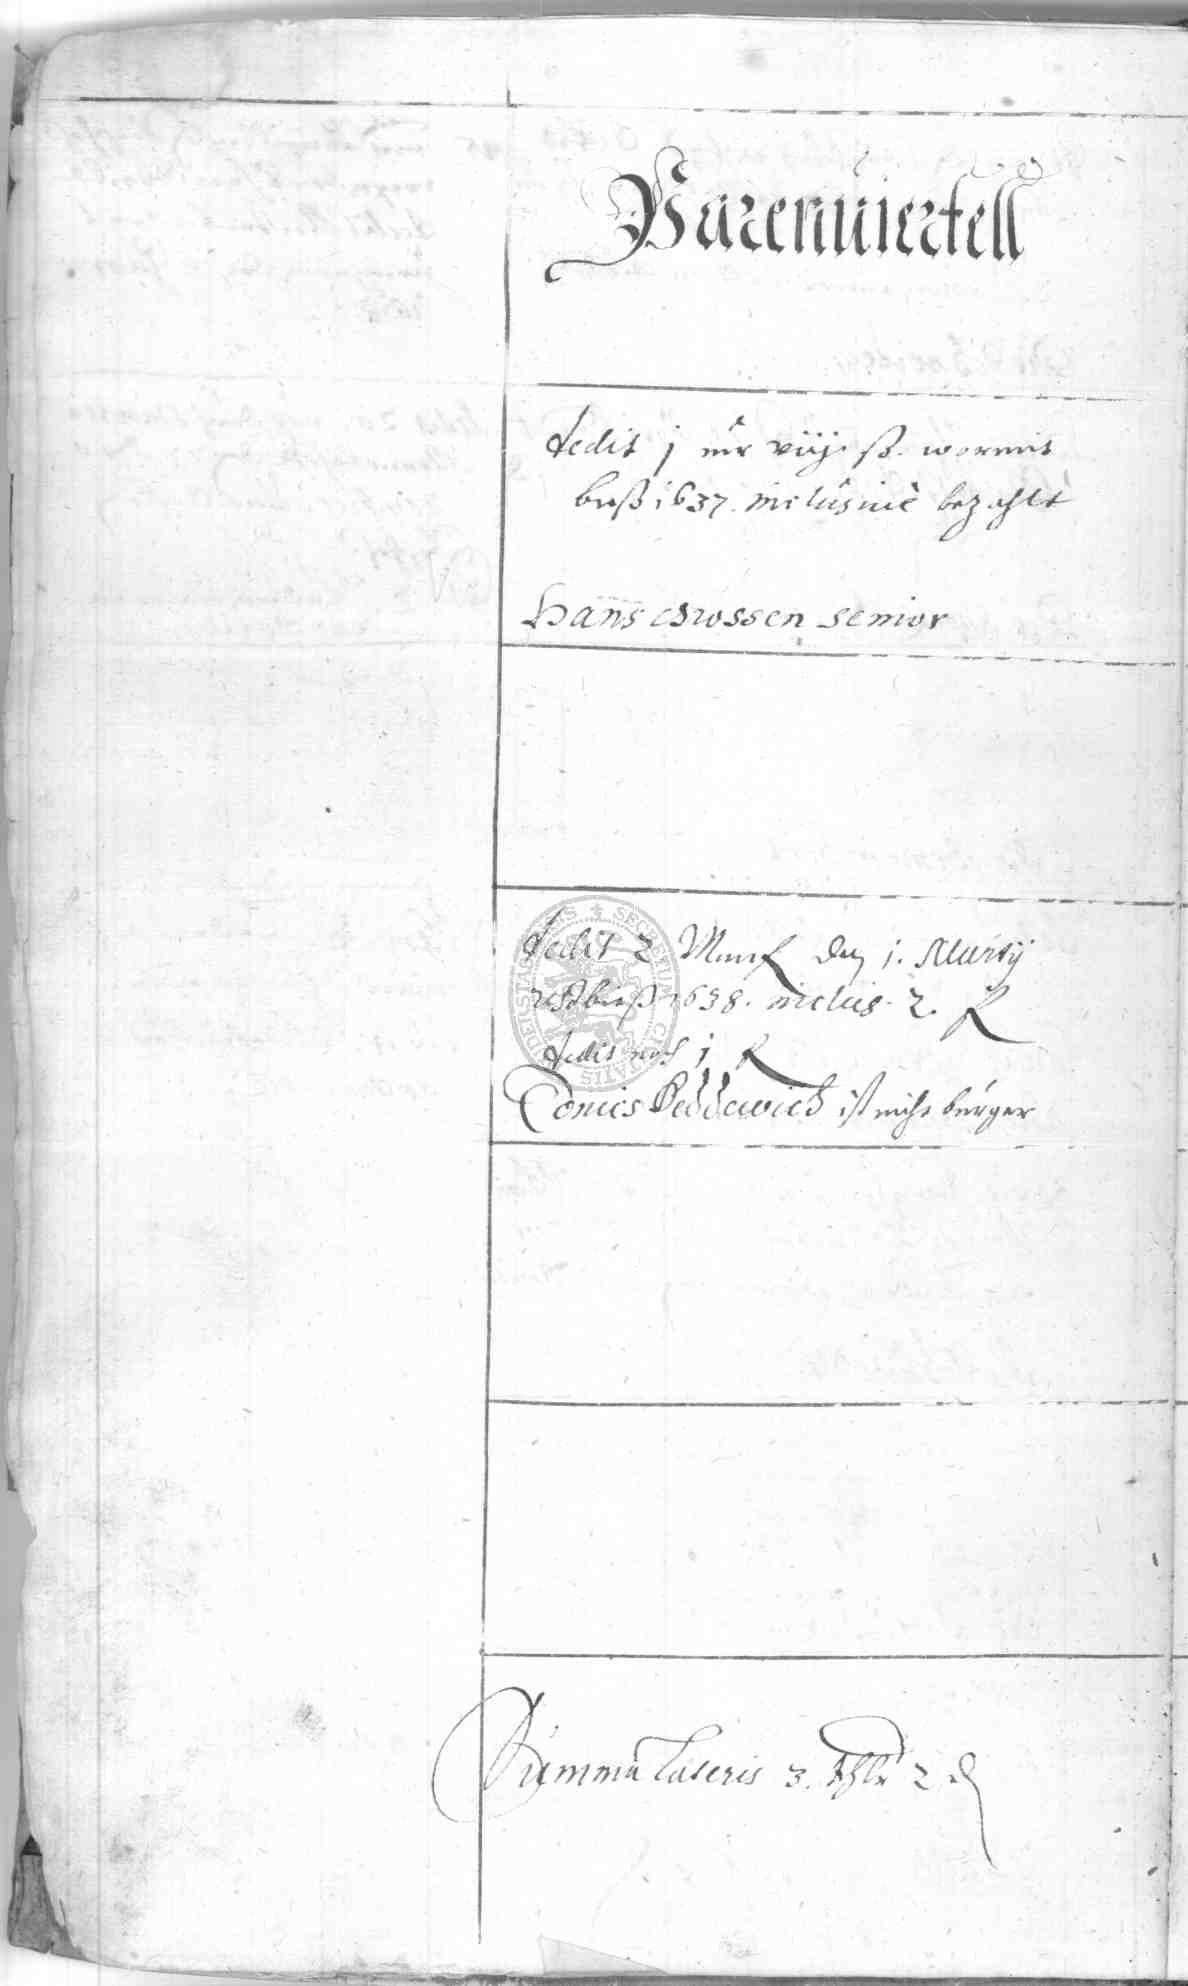 Parenviertell
dedit j mr viij ß. wormit
buß 1637. inclusivè bezahlt
Hans Grossen senior
dedit 2 Marck den j. Martij
restb buß 1638. inclus. 2.
dedit noch j
Tönies Beddewich ist nicht bürger
SECRETUM CIVITATIS
Summa Lateris 3. thlr 2